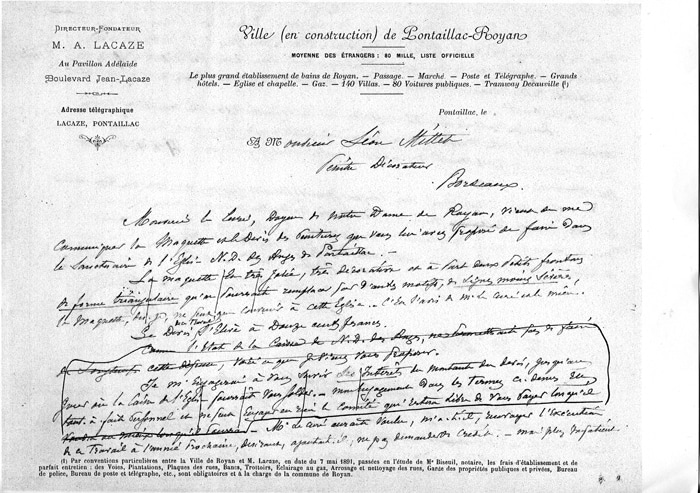 Directeur-Fondateur
M. A. LACAZE
Au Pavillon Adélaïde
Boulevard Jean-Lacaze
Adresse télégraphique
LACAZE, PONTAILLAC
Ville (en construction) de Pontaillac-Royan
MOYENNE DES ÉTRANGERS : 80 MILLE, LISTE OFFICIELLE
Le plus grand établissement de bains de Royan. — Passage. — Marché. — Poste et Télégraphe. — Grands
hôtels. — Eglise et chapelle. — Gaz. — 140 Villas. — 80 Voitures publiques. — Tramway Decauville (1)
Pontaillac, le
A Monsieur Léon Millet
Peintre Décorateur
Bordeaux
Monsieur le Curé, Doyen de Notre Dame de Royan, vient de me
communiquer la Maquette et le Devis des Peintures que vous lui avez proposé de faire dans
le Sanctuaire de l'Eglise N. D. des Anges de Pontaillac. —
La maquette est très jolie, très décorative et à part deux petits frontons
de forme triangulaire qu'on pourrait remplacer par d'autres motifs, de lignes moins sévères,
la Maquette, dis-je, ne peut que convenir à cette Eglise. — C'est l'avis de Mr le Curé et le mien.
Le Devis s'élève à Douze cents francs.
Comme l'état de la Caisse de N. D. des Anges, ne permettrait pas de faire
de longtemps cette dépense, voilà ce que je viens vous proposer.
Je m'engagerai à vous servir les Intérêts du montant du devis, jusqu'au
jour où la Caisse de l'Eglise pourrait vous solder. — mon engagement dans les termes ci-dessus est
tout à fait personnel et ne peut engager en rien le Comité qui restera libre de vous payer lorsqu'il
Mr le Curé aurait voulu, m'a-t-il, l'exécution
de ce Travail à l'année prochaine, ajoutait-il, ne pas demander de Crédit. —
(1) Par conventions particulières entre la Ville de Royan et M. Lacaze, en date du 7 mai 1891, passées en l'étude de Me Biseuil, notaire, les frais d'établissement et de
parfait entretien : des Voies, Plantations, Plaques des rues, Bancs, Trottoirs, Éclairage au gaz, Arrosage et nettoyage des rues, Garde des propriétés publiques et privées, Bureau
de police, Bureau de poste et télégraphe, etc., sont obligatoires et à la charge de la commune de Royan.